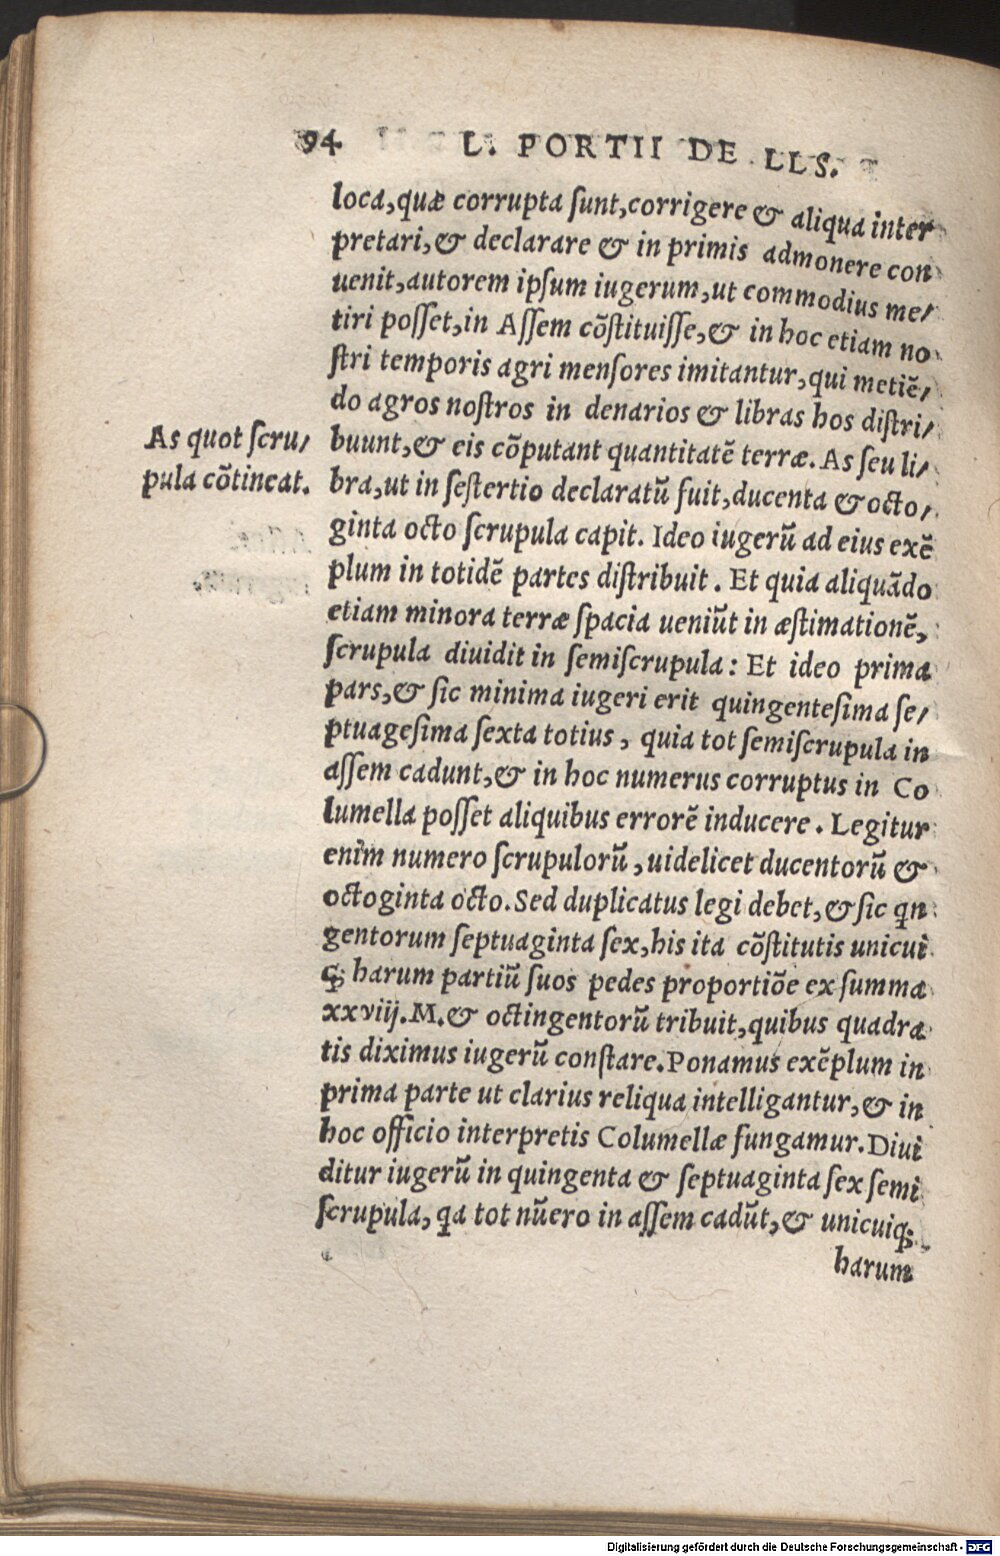 94 L. PORTII DE LLS.
loca,quæ corrupta ſunt,corrigere & aliqua inter
pretari,& declarare & in primis admonere con
uenit,autorem ipſum iugerum,ut commodius me/
tiri poſſet,in Aſſem cõſtituiſſe,& in hoc etiam no
ſtri temporis agri menſores imitantur,qui metiẽ/
do agros noſtros in denarios & libras hos diſtri/
As quot ſcru/
pula cõtineat.
buunt,& eis cõputant quantitatẽ terræ. As ſeu li/
bra,ut in ſeſtertio declaratũ fuit,ducenta & octo/
ginta octo ſcrupula capit. Ideo iugerũ ad eius exẽ
plum in totidẽ partes diſtribuit. Et quia aliquãdo
etiam minora terræ ſpacia ueniũt in æſtimationẽ,
ſcrupula diuidit in ſemiſcrupula: Et ideo prima
pars,& ſic minima iugeri erit quingenteſima ſe/
ptuageſima ſexta totius, quia tot ſemiſcrupula in
aſſem cadunt,& in hoc numerus corruptus in Co
lumella poſſet aliquibus errorẽ inducere. Legitur
enim numero ſcrupulorũ, uidelicet ducentorũ &
octoginta octo. Sed duplicatus legi debet,& ſic qn
gentorum ſeptuaginta ſex,his ita cõſtitutis unicui
q; harum partiũ ſuos pedes proportiõe ex ſumma
xxviij.M.& octingentorũ tribuit,quibus quadra
tis diximus iugerũ conſtare. Ponamus exẽplum in
prima parte ut clarius reliqua intelligantur,& in
hoc officio interpretis Columellæ fungamur. Diui
ditur iugerũ in quingenta & ſeptuaginta ſex ſemi
ſcrupula, qa tot nũero in aſſem cadũt,& unicuiq;
harum
Digitalisierung gefördert durch die Deutsche Forschungsgemeinschaft - DFG